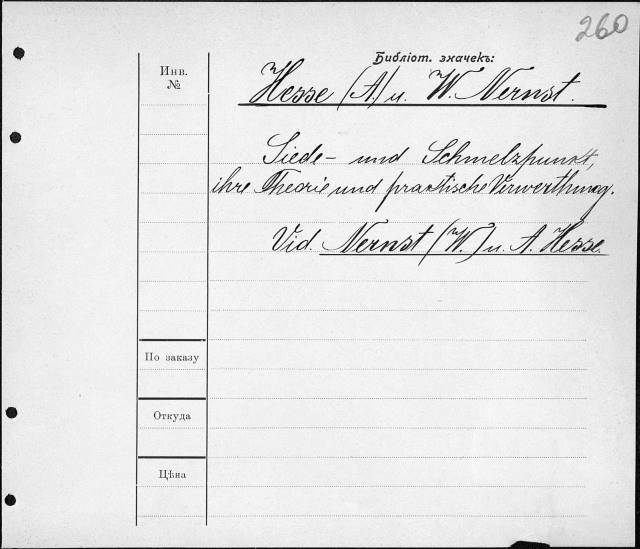 260
Библіот. значекъ:
Инв.
№
Hesse (A.) u. W. Nernst.
Siede- und Schmelzpunkt,
ihre Theorie und practische Verwerthung.
Vid. Nernst (W.) u. A. Hesse.
По заказу
Откуда
Цѣна